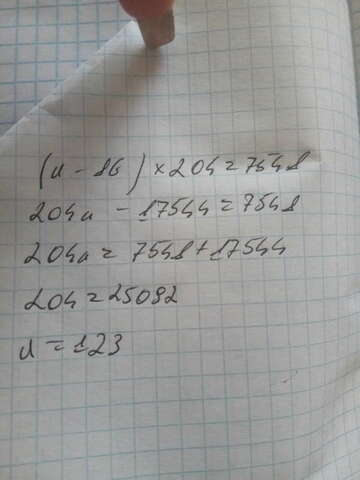 (u - 86) × 204 = 7548
204u - 17544 = 7548
204u = 7548 + 17544
204 = 25092
u = 123